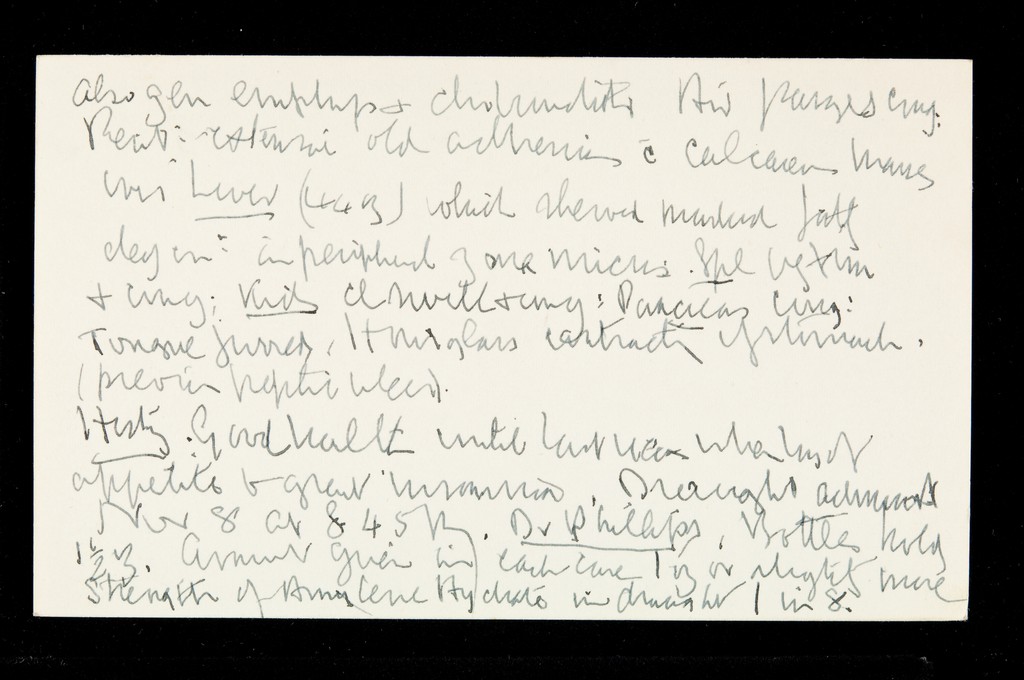 also gen emphys + Air passages cong:
extensive old adhesions c̄ calcareous masses
over Liver (44 oz) which showed marked fatty
degenn: in peripheral zone micros. Spl
+ cong; Kids cl swell + cong: Pancreas cong:
Tongue furred, Hourglass contractn of stomach.
(previous peptic ulcer).
History. Good health until last year when lost
appetite & great insomnia. Draught administ
Nov 8 at 8 45 Dr Phillips. Bottles hold
1½ oz. Amount given in each case 1 oz or slight more
Strength of Amylene Hydrate in draught 1 in 8.